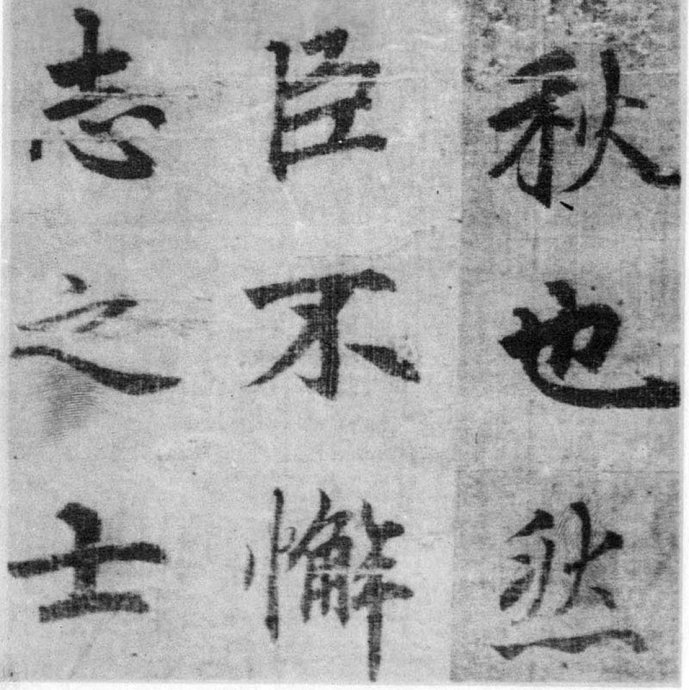 秋也然
臣不懈
志之士